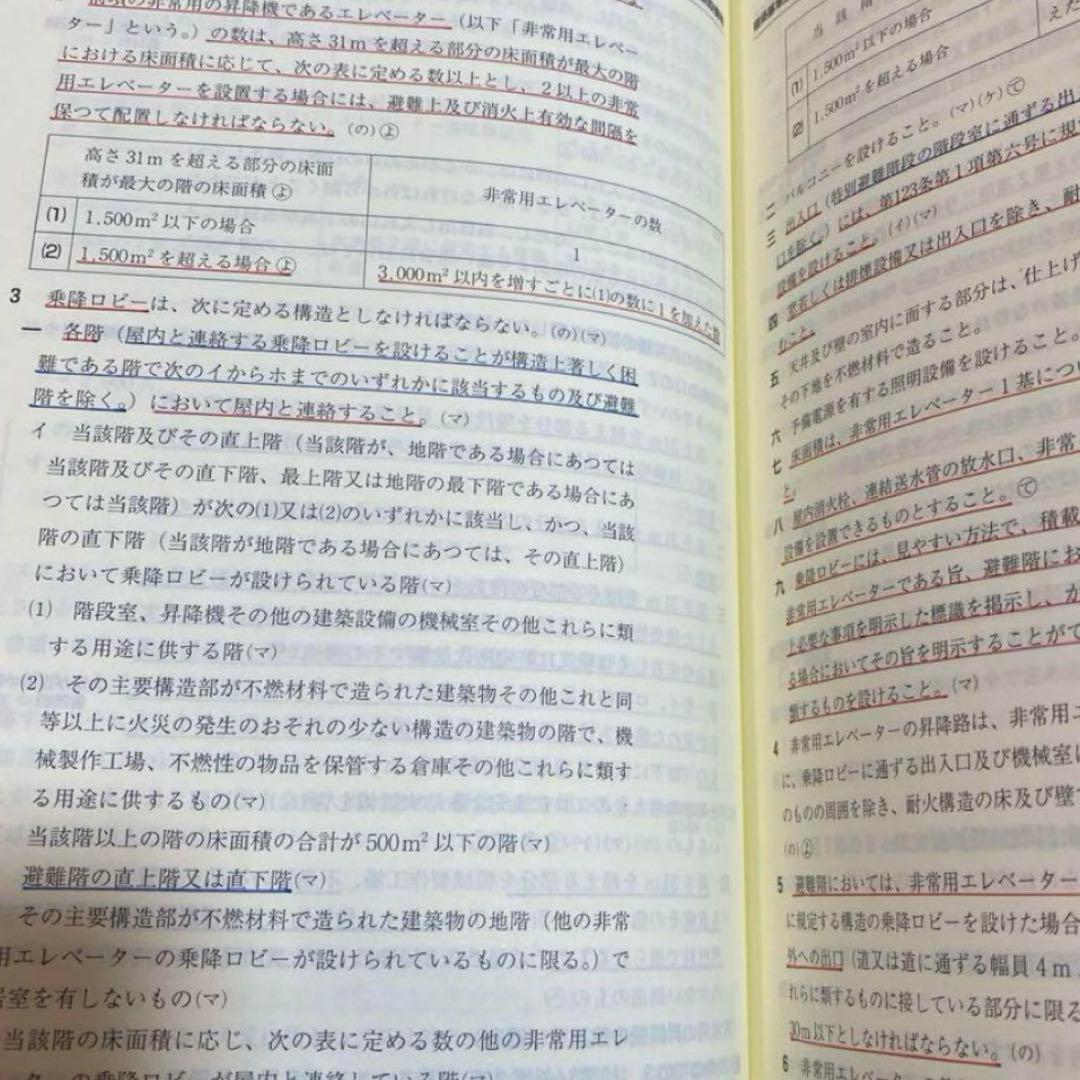 前項の非常用の昇降機であるエレベーター（以下「非常用エレベー
ター」という。）の数は、高さ31mを超える部分の床面積が最大の階
における床面積に応じて、次の表に定める数以上とし、2以上の非常
用エレベーターを設置する場合には、避難上及び消火上有効な間隔を
保つて配置しなければならない。(の)㋵
高さ31mを超える部分の床面
積が最大の階の床面積㋵
非常用エレベーターの数
(1) 1,500m²以下の場合
1
(2) 1,500m²を超える場合㋵
3,000m²以内を増すごとに(1)の数に1を加えた数
3 乗降ロビーは、次に定める構造としなければならない。(の)(マ)
一 各階（屋内と連絡する乗降ロビーを設けることが構造上著しく困
難である階で次のイからホまでのいずれかに該当するもの及び避難
階を除く。）において屋内と連絡すること。(マ)
イ 当該階及びその直上階（当該階が、地階である場合にあつては
当該階及びその直下階、最上階又は地階の最下階である場合にあ
つては当該階）が次の(1)又は(2)のいずれかに該当し、かつ、当該
階の直下階（当該階が地階である場合にあつては、その直上階）
において乗降ロビーが設けられている階(マ)
(1) 階段室、昇降機その他の建築設備の機械室その他これらに類
する用途に供する階(マ)
(2) その主要構造部が不燃材料で造られた建築物その他これと同
等以上に火災の発生のおそれの少ない構造の建築物の階で、機
械製作工場、不燃性の物品を保管する倉庫その他これらに類す
る用途に供するもの(マ)
当該階以上の階の床面積の合計が500m²以下の階(マ)
避難階の直上階又は直下階(マ)
その主要構造部が不燃材料で造られた建築物の地階（他の非常
用エレベーターの乗降ロビーが設けられているものに限る。）で
居室を有しないもの(マ)
当該階の床面積に応じ、次の表に定める数の他の非常用エレ
ターの乗降ロビーが屋内と連絡している階(マ)
当該階
(1) 1,500m²以下の場合
(2) 1,500m²を超える場合
二 バルコニーを設けること。(マ)(ケ)㋢
三 出入口（特別避難階段の階段室に通ずる出
口を除く。）には、第123条第1項第六号に規
設備を設けること。(イ)(マ)
四 窓若しくは排煙設備又は出入口を除き、耐
むこと。
五 天井及び壁の室内に面する部分は、仕上げ
その下地を不燃材料で造ること。
六 予備電源を有する照明設備を設けること。
七 床面積は、非常用エレベーター1基につい
と。
八 屋内消火栓、連結送水管の放水口、非常
設備を設置できるものとすること。㋢
九 乗降ロビーには、見やすい方法で、積載
非常用エレベーターである旨、避難階にお
上必要な事項を明示した標識を掲示し、か
る場合においてその旨を明示することがで
類するものを設けること。(マ)
4 非常用エレベーターの昇降路は、非常用
に、乗降ロビーに通ずる出入口及び機械室に
のものの周囲を除き、耐火構造の床及び壁で
(の)㋵
5 避難階においては、非常用エレベーター
に規定する構造の乗降ロビーを設けた場合
外への出口（道又は道に通ずる幅員4m
れらに類するものに接している部分に限る
30m以下としなければならない。(の)
6 非常用エレベーター